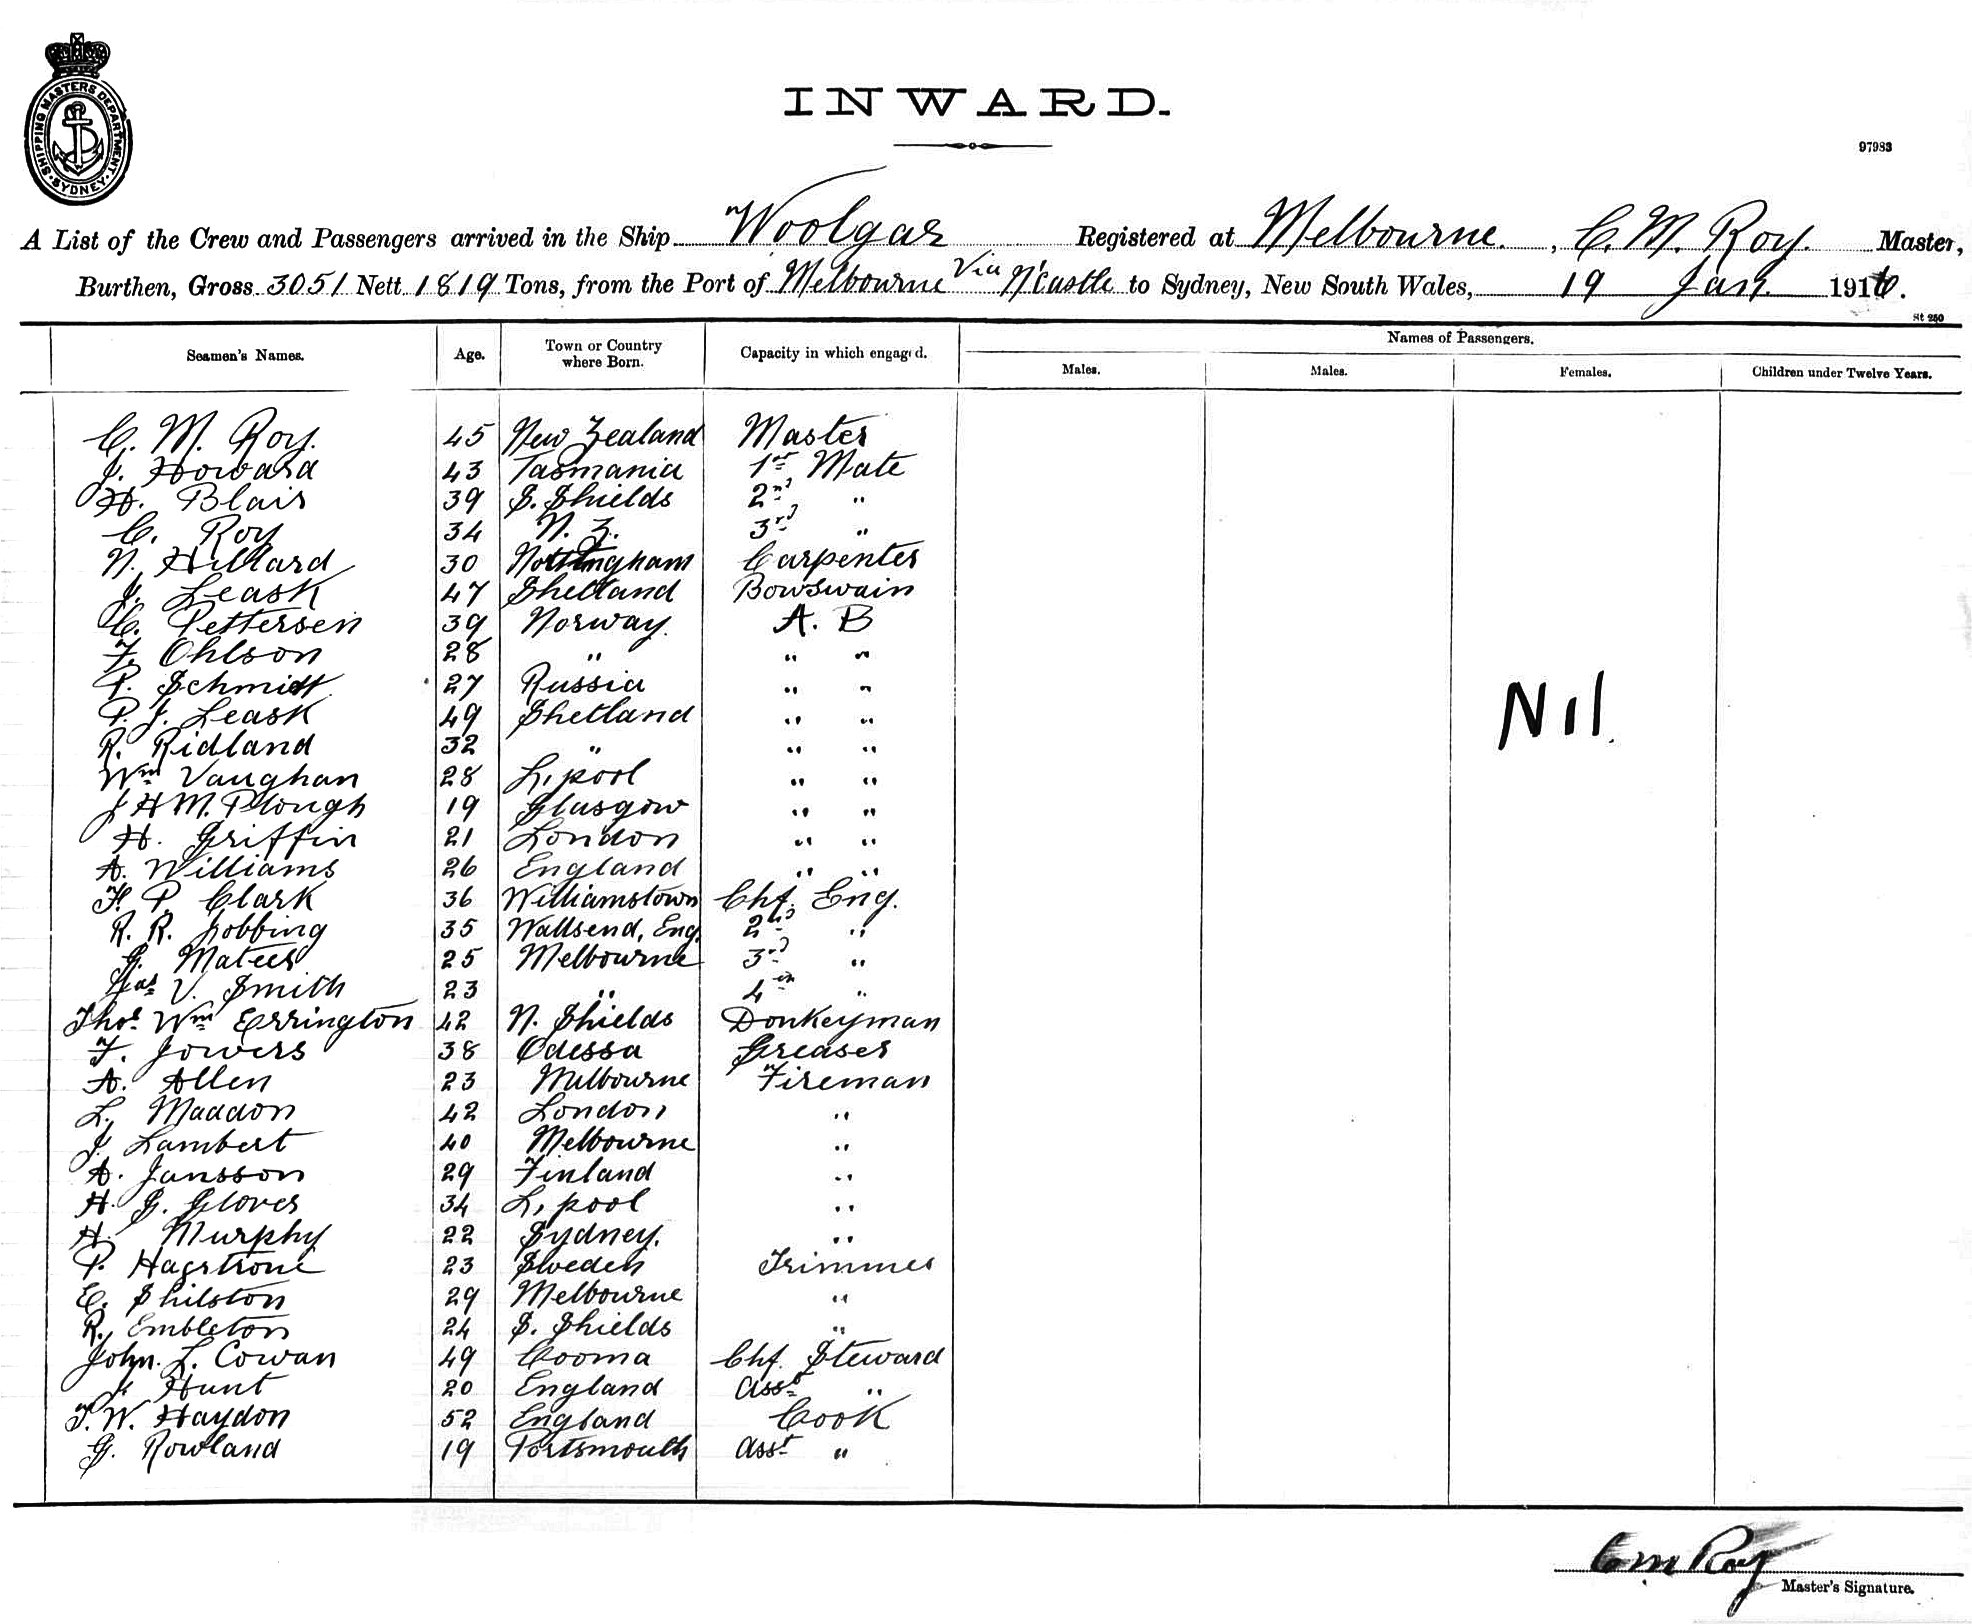 SHIPPING MASTERS DEPARTMENT. SYDNEY.
INWARD.
97983
A List of the Crew and Passengers arrived in the Ship Woolgar Registered at Melbourne. , C. M. Roy. Master,
Burthen, Gross 3051 Nett 1819 Tons, from the Port of Melbourne Via N'Castle to Sydney, New South Wales, 19 Jan. 1916.
St 250
Seamen's Names. Age. Town or Country where Born. Capacity in which engaged. Names of Passengers.
Males. Males. Females. Children under Twelve Years.
C. M. Roy. 45 New Zealand Master
J. Howard 43 Tasmania 1st Mate
H. Blair 39 S. Shields 2nd "
C. Roy 34 N. Z. 3rd "
N. Hillard 30 Nottingham Carpenter
J. Leask 47 Shetland Bowswain
C. Pettersen 39 Norway. A. B
F. Ohlson 28 " " "
P. Schmidt. 27 Russia " "
P. J. Leask 49 Shetland " "
Nil.
R. Ridland 32 " " "
Wm Vaughan 28 L,pool " "
J H M. Plough 19 Glasgow " "
H. Griffin 21 London " "
A. Williams 26 England " "
F. P Clark 36 Williamstown Chf. Eng.
R. R. Jobbing 35 Wallsend, Eng. 2nd "
G. Mateer 25 Melbourne 3rd "
Jas V. Smith 23 " 4th "
Thos Wm Errington 42 N. Shields Donkeyman
F. Jowers 38 Odessa Greaser
A. Allen 23 Melbourne Fireman
L. Maddon 42 London "
J. Lambert 40 Melbourne "
A. Jansson 29 Finland "
H. G. Glover 34 L,pool "
H. Murphy 22 Sydney. "
P. Hagstrone 23 Sweden Trimmer
E. Shilston 29 Melbourne "
R. Embleton 24 S. Shields "
John. L. Cowan 49 Cooma Chf. Steward
J Hunt 20 England Asst "
T. W. Haydon 52 England Cook
G. Rowland 19 Portsmouth Asst "
C M Roy
Master's Signature.